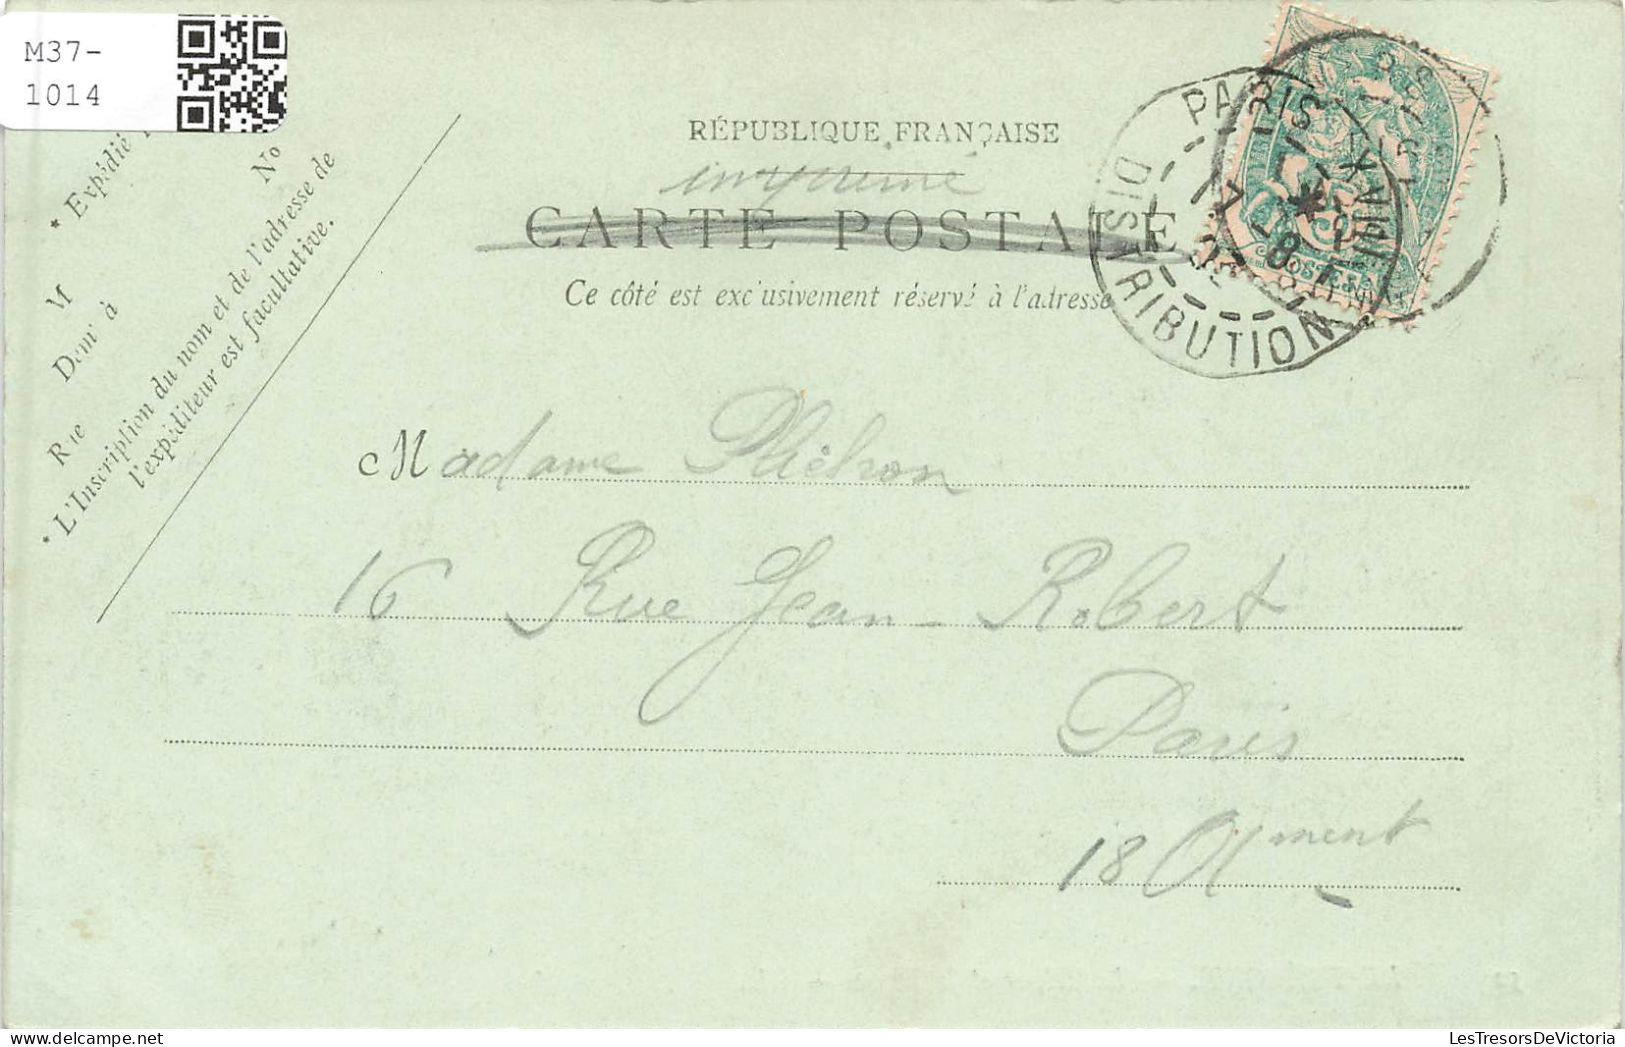 M37-
1014
* Expédié
M
Demt à
Rue
No
* L'Inscription du nom et de l'adresse de
l'expéditeur est facultative.
RÉPUBLIQUE FRANÇAISE
imprimé
CARTE POSTALE
Ce côté est exclusivement réservé à l'adresse
PARIS
DISTRIBUTION
17
POSTES
Madame
16 Rue Jean-Robert
Paris
18
LesTresorsDeVictoria